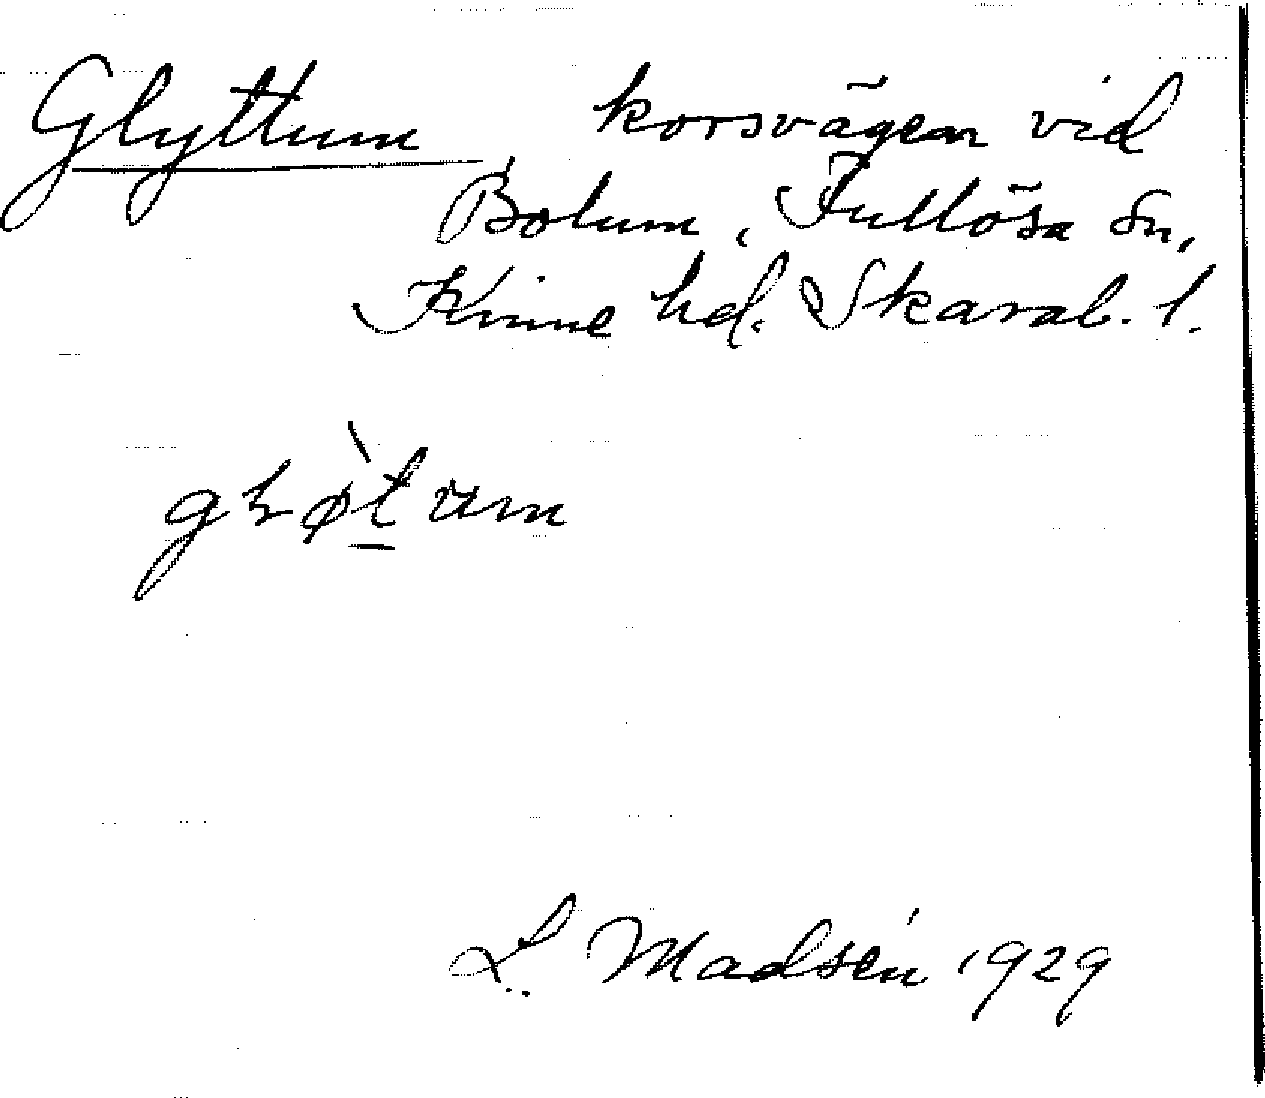 Glyttum, korsvägen vid
Bolum, Fullösa sn,
Kinne hd. Skarab. l.
L. Madsén 1929